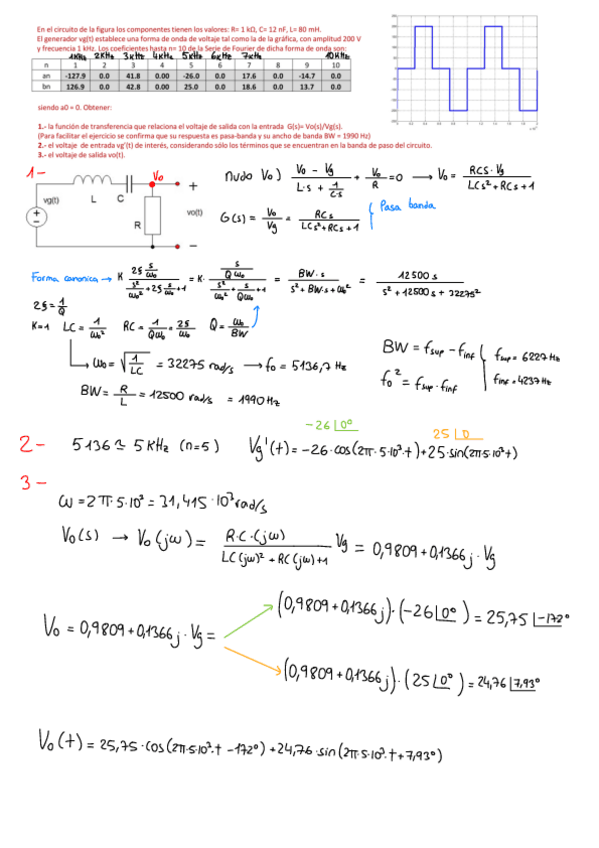 En el circuito de la figura los componentes tienen los valores: R= 1 kΩ, C= 12 nF, L= 80 mH.
El generador vg(t) establece una forma de onda de voltaje tal como la de la gráfica, con amplitud 200 V
y frecuencia 1 kHz. Los coeficientes hasta n= 10 de la Serie de Fourier de dicha forma de onda son:
1kHz 2kHz 3kHz 4kHz 5kHz 6kHz 7kHz 10kHz
n 1 2 3 4 5 6 7 8 9 10
an -127.9 0.0 41.8 0.00 -26.0 0.0 17.6 0.0 -14.7 0.0
bn 126.9 0.0 42.8 0.00 25.0 0.0 18.6 0.0 13.7 0.0
siendo a0 = 0. Obtener:
1.- la función de transferencia que relaciona el voltaje de salida con la entrada G(s)= Vo(s)/Vg(s).
(Para facilitar el ejercicio se confirma que su respuesta es pasa-banda y su ancho de banda BW = 1990 Hz)
2.- el voltaje de entrada vg'(t) de interés, considerando sólo los términos que se encuentran en la banda de paso del circuito.
3.- el voltaje de salida vo(t).
1-
vg(t) L C Vo R vo(t) + -
nudo Vo) (Vo - Vg)/(L·s + 1/(C·s)) + Vo/R = 0 → Vo = RCS·Vg/(LCs²+RCs+1)
G(s) = Vo/Vg = RCs/(LCs²+RCs+1) { Pasa banda
Forma canonica → K (2ξ s/ω₀)/(s²/ω₀² + 2ξ s/ω₀ + 1) = K· (s/(Qω₀))/(s²/ω₀² + s/(Qω₀) + 1) = BW·s/(s² + BW·s + ω₀²) = 12500s/(s² + 12500s + 32275²)
2ξ = 1/Q
K=1 LC = 1/ω₀² RC = 1/(Qω₀) = 2ξ/ω₀ Q = ω₀/BW
ω₀ = √(1/LC) = 32275 rad/s → f₀ = 5136,7 Hz
BW = R/L = 12500 rad/s = 1990Hz
BW = fsup - finf { fsup = 6227Hz
f₀² = fsup · finf finf = 4237Hz
-26∟0° 25∟0
2- 5136 ≃ 5kHz (n=5) Vg'(t) = -26·cos(2π·5·10³·t)+25·sin(2π5·10³t)
3-
ω = 2π·5·10³ = 31,415·10³rad/s
Vo(s) → Vo(jω) = R·C·(jω)/(LC(jω)² + RC(jω)+1) Vg = 0,9809+0,1366j·Vg
(0,9809+0,1366j)·(-26∟0°) = 25,75∟-172°
Vo = 0,9809+0,1366j·Vg =
(0,9809+0,1366j)·(25∟0°) = 24,76∟7,93°
Vo(t) = 25,75·cos(2π·5·10³·t -172°)+24,76·sin(2π·5·10³·t+7,93°)